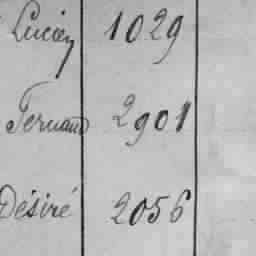 Lucien 1029
Fernand 2901
Désiré 2056